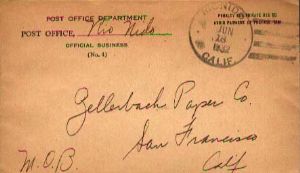 POST OFFICE DEPARTMENT
POST OFFICE, Rio Nido
OFFICIAL BUSINESS
(No. 4)
PENALTY FOR PRIVATE USE TO
AVOID PAYMENT OF POSTAGE, $300
RIO NIDO
JUN
18
1932
CALIF.
Zellerbach Paper Co.
San Francisco
Calif
M.O.B.